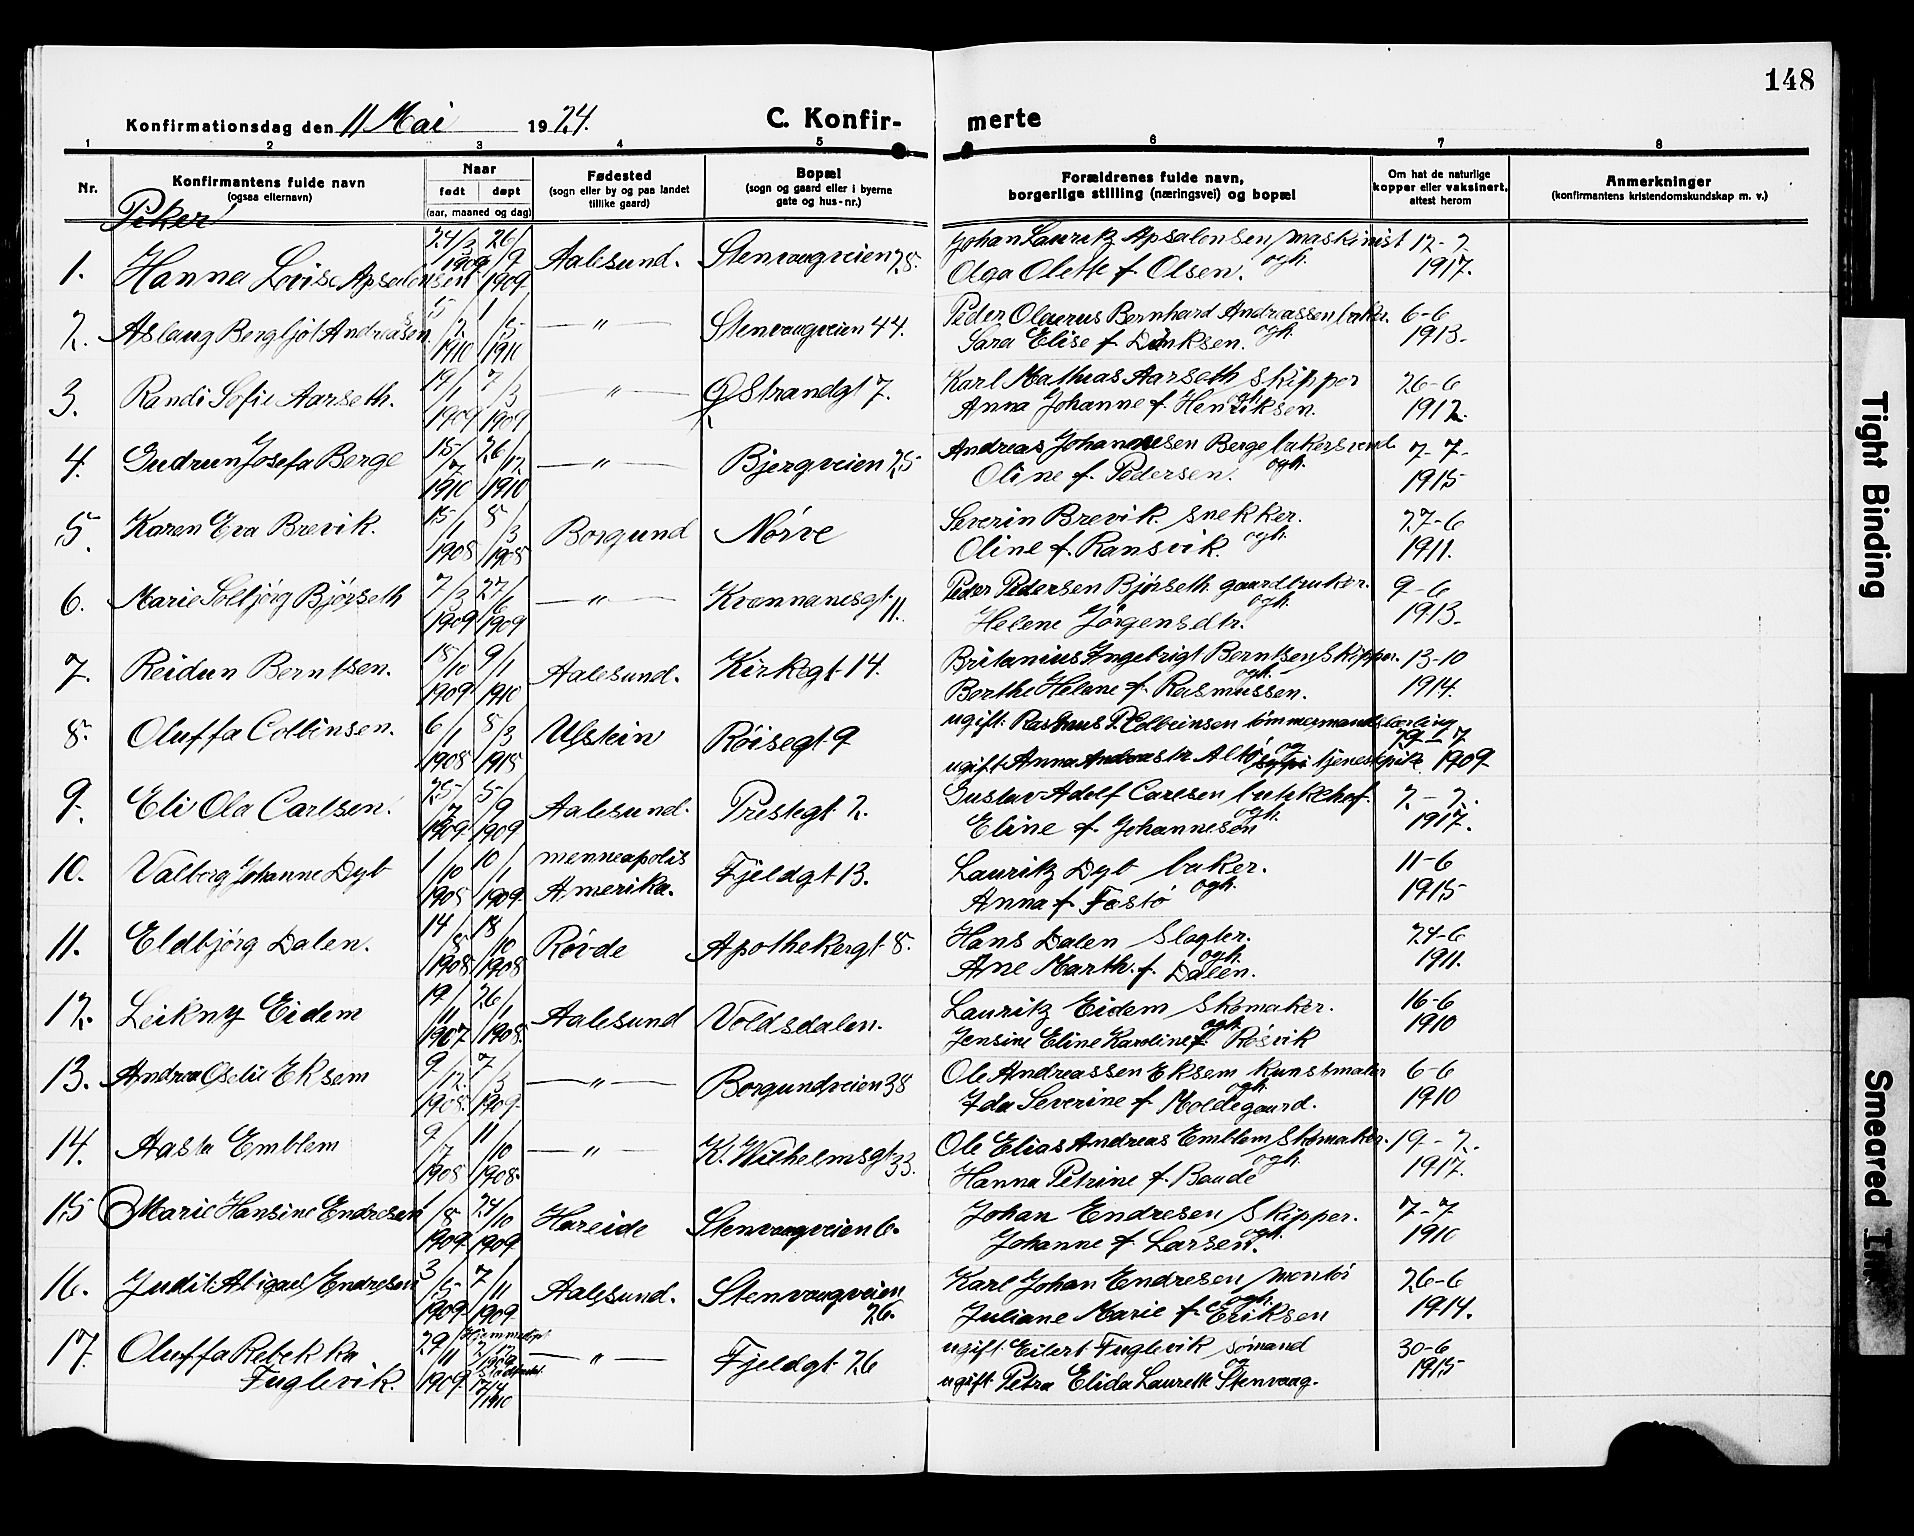 148
Konfirmationsdag den 11 Mai 1924.
C. Konfir-merte
1 2 3 4 5 6 7 8
Nr.
Konfirmantens fulde navn
(ogsaa efternavn)
Naar
født døpt
(aar, maaned og dag)
Fødested
(sogn eller by og paa landet
tillike gaard)
Bopæl
(sogn og gaard eller i byerne
gate og hus-nr.)
Forældrenes fulde navn,
borgerlige stilling (næringsvei) og bopæl
Om hat de naturlige
kopper eller vaksinert,
attest herom
Anmerkninger
(konfirmantens kristendomskundskap m. v.)
Piker
1. Hanna Lovise Apsalonsen 24/3 1909 26/9 1909 Aalesund. Stenvaagveien 28. Johan Lauritz Apsalonsen, maskinist 12-2
Olga Olette f. Olsen. ogh. 1917.
2. Aslaug Bergljot Andreassen 5/2 1910 1/5 1910 —"— Stenvaagveien 44. Peder Olaerus Bernhard Andreassen baker. 6-6
Sara Elise f. Dinksen. ogh. 1913.
3. Randi Sofie Aarseth. 19/1 1909 7/3 1909 —"— Ø Strandgt 7. Karl Mathias Aarseth skipper 26-6
Anna Johanne f. Henriksen. ogh. 1912.
4. Gudrun Josefa Berge 15/7 1910 26/12 1910 —"— Bjergveien 25 Andreas Johannesen Berge bakersvend 7-7-
Oline f. Pedersen. ogh. 1915
5. Karen Eva Brevik. 15/1 1908 8/3 1908 Borgund Nørve Severin Brevik. snekker. 27-6
Oline f. Ransvik. ogh. 1911.
6. Marie Solbjørg Bjørseth 7/3 1909 27/6 1909 —"— Kvennanesgt 11. Peder Pedersen Bjørseth. gaardbruker. 9-6
Helene Jørgensdtr. ogh. 1913.
7. Reidun Berntsen. 15/10 1909 9/1 1910 Aalesund. Kirkegt. 14. Britanius Ingebrigt Berntsen, skipper. 13-10
Berthe Helene f. Rasmussen. ogh. 1914.
8. Oluffa Colbinsen. 6/1 1908 8/3 1918 Ulstein Røisegt 9 ugift. Rasmus P. Colbeinsen tømmermandslærling 19-7
ugift Anna tjenestpike. og 1909
9. Eli Ola Carlsen. 25/7 1909 5/9 1909 Aalesund. Prestegt. 2. Gustav Adolf Carlsen 2-2.
Eline f. Johannesen ogh. 1917.
10. Valborg Johanne Dyb 1/10 1908 10/1 1909 menneapolis
Amerika. Fjeldgt 13. Lauritz Dyb baker. 11-6
Anna f. Føstø ogh. 1915
11. Eldbjørg Dalen. 14/8 1908 18/10 1908 Røvde Apothekergt. 8. Hans Dalen slagter. 24-6
Ane Marth. f. Dalen. ogh. 1911.
12. Leikny Eidem 19/11 1907 26/1 1908 Aalesund Voldsdalen. Lauritz Eidem skomaker. 16-6
Jensine Eline Karoline f. Røsvik ogh. 1910
13. Andrea Oselie Eksem 9/12 1908 7/3 1909 —"— Borgundveien 38 Ole Andreassen Eksem kunstmaler 6-6
Ida Severine f. Moldegaard. ogh. 1910
14. Aasta Emblem 9/7 1908 11/10 1908. —"— K. Wilhelmsgt 33. Ole Elias Andreas Emblem, skomaker. 19-2.
Hanna Petrine f. Baude ogh. 1917.
15 Marie Hansine Endresen 1/8 1909 24/10 1909 Hareide Stenvaagveien 6. Johan Endresen skipper. 7-7
Johanne f. Larsen. ogh. 1910
16. Judit Abigael Endresen 3/5 1909 7/11 1909 Aalesund. Stenvaagveien
26. Karl Johan Endresen, montør 26-6
Juliane Marie f. Eriksen ogh. 1914.
17. Oluffa Rebekka
Fuglevik. 29/11 1909 Hjemmedøpt
2/12 1909
Stadfestet
17/4 1910 —"— Fjeldgt. 26 ugift Eilert Fuglevik sømand 30-6
ugift Petra Elida Laurette Stenvaag. og 1915
Tight Binding
Smeared Ink